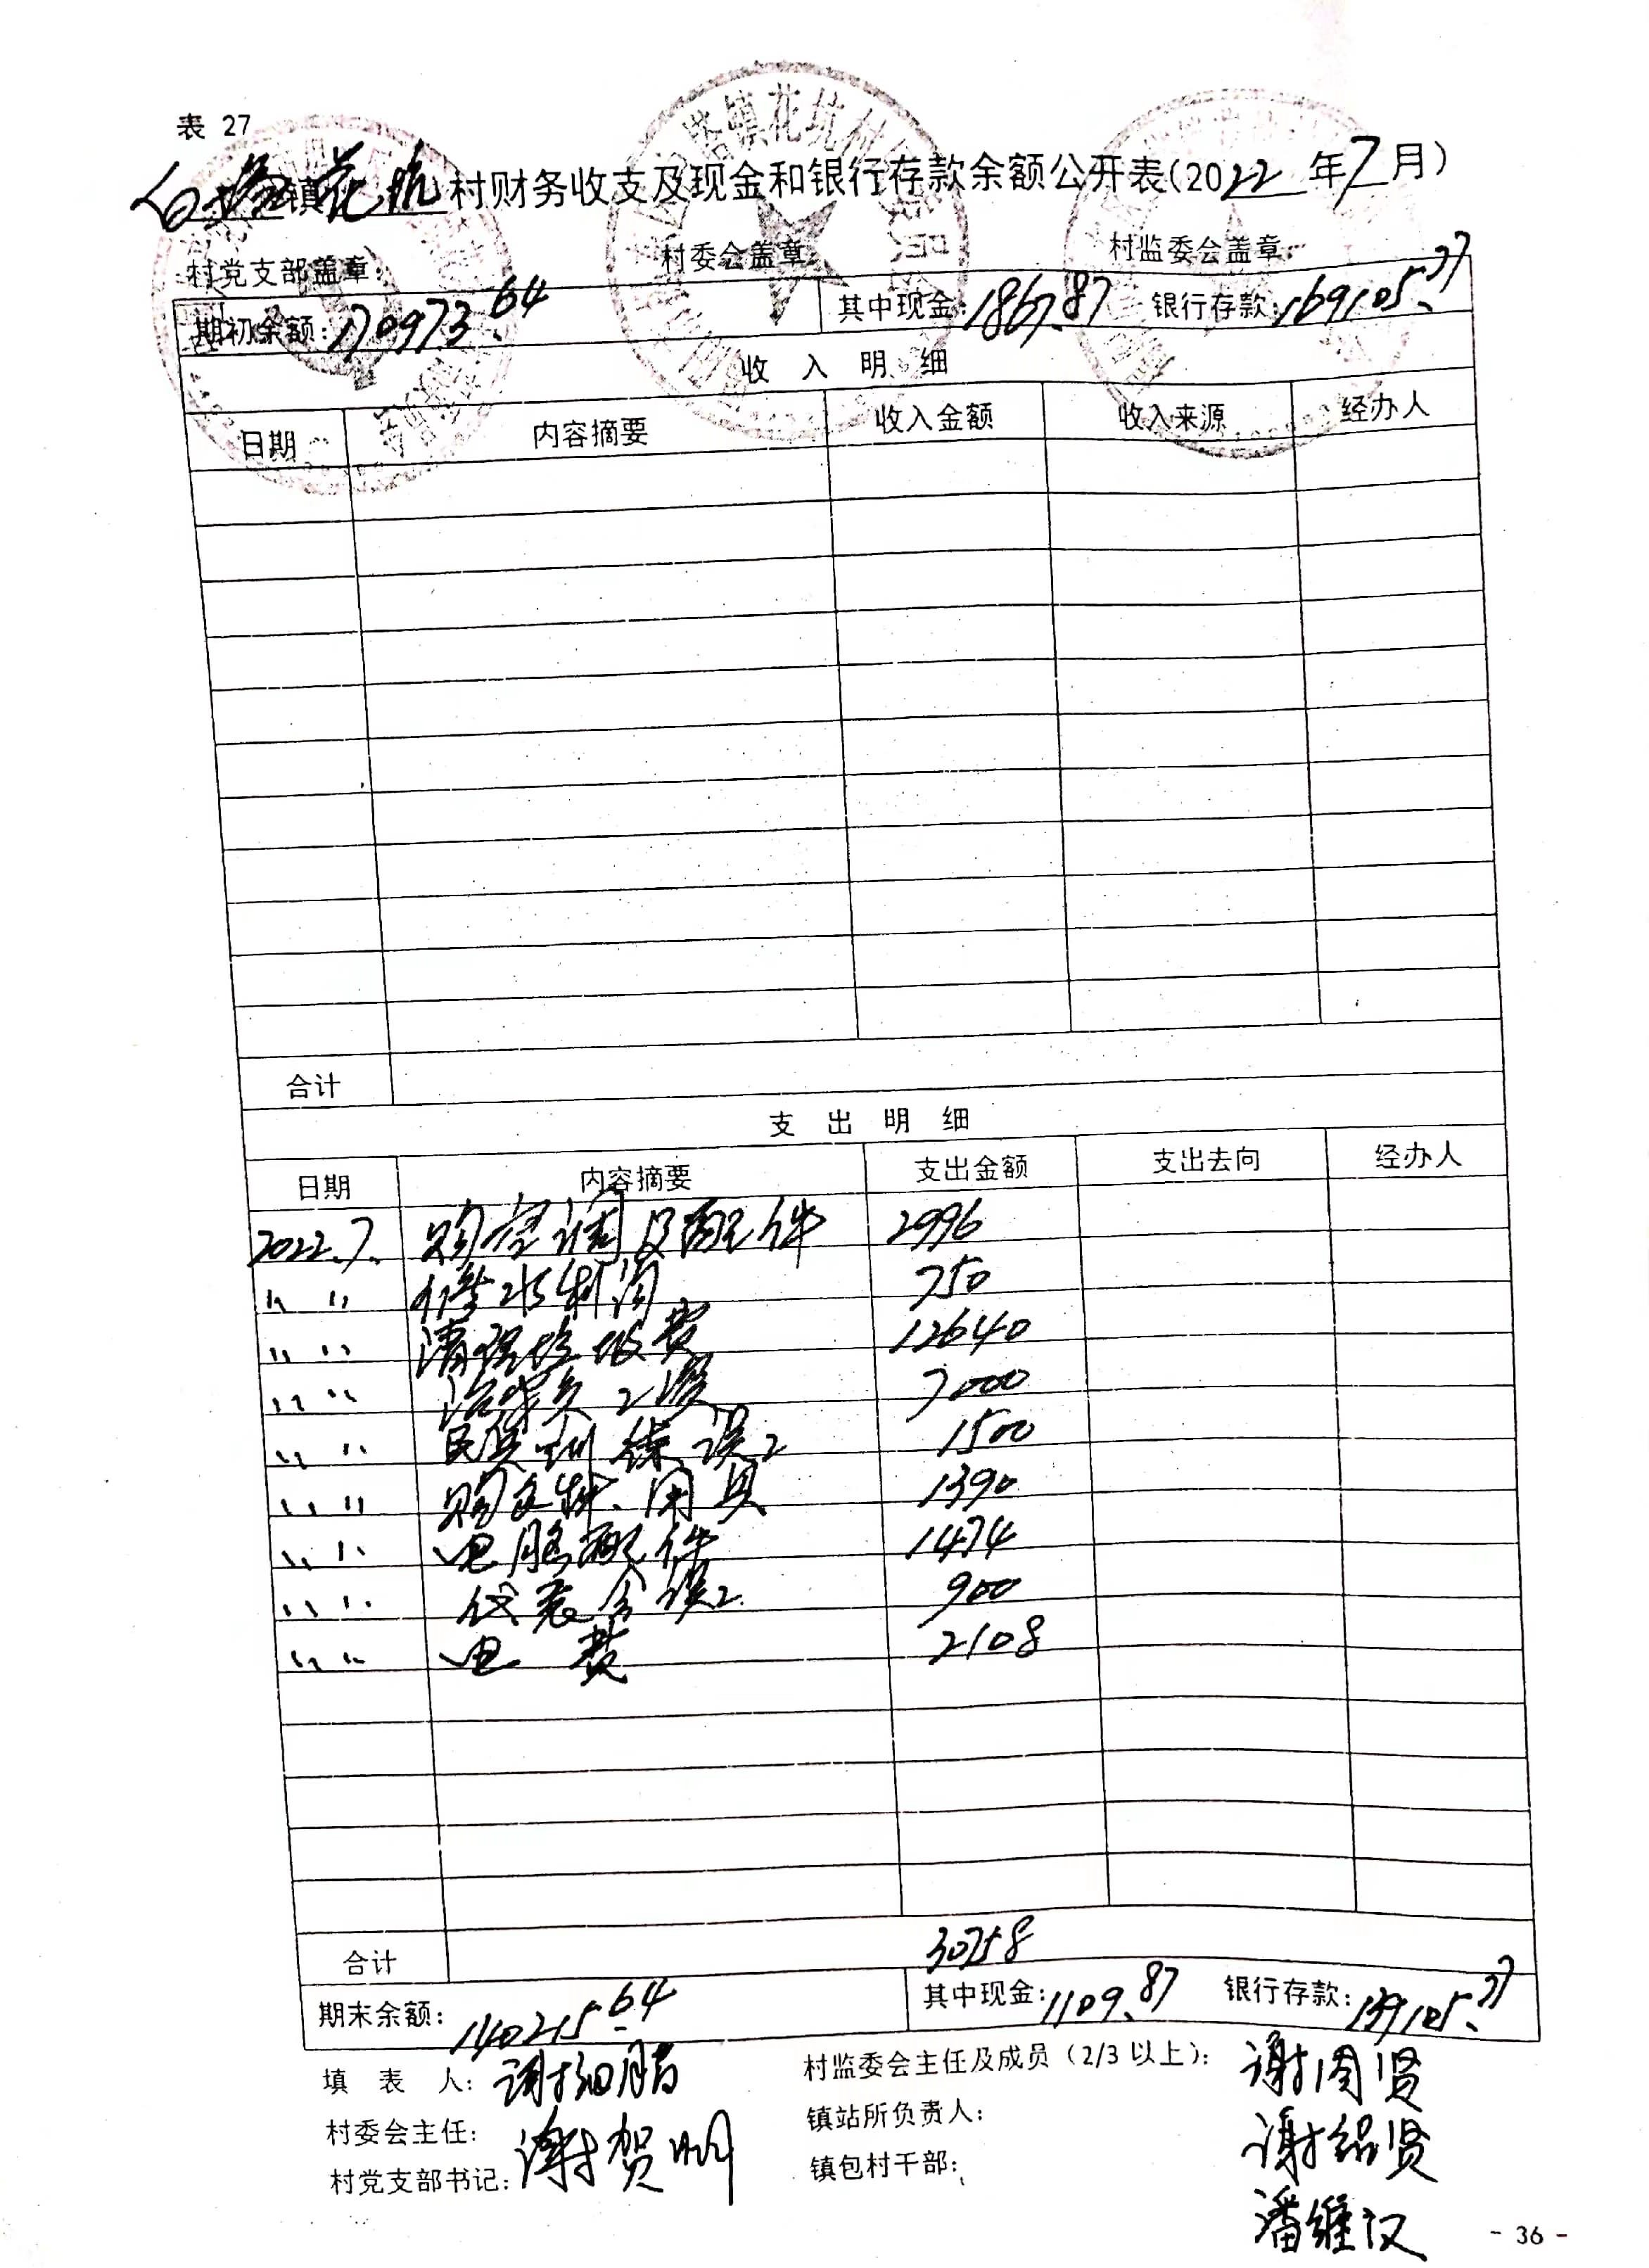 表 27
白塔镇花坑村财务收支及现金和银行存款余额公开表(2022年7月)
村党支部盖章: 村委会盖章: 村监委会盖章:
期初余额:170973.64 其中现金:1867.87 银行存款:169105.77
收 入 明 细
日期 内容摘要 收入金额 收入来源 经办人
合计
支 出 明 细
日期 内容摘要 支出金额 支出去向 经办人
2022.7. 购空调及配件 2996
〃 〃 修水利沟 750
〃 〃 清理垃圾费 12640
〃 〃 治安员工资 7000
〃 〃 民兵训练误工 1500
〃 〃 购文柜、用具 1390
〃 〃 电脑配件 1474
〃 〃 代表会误工 900
〃 〃 电 费 2108
合计 30758
期末余额:140215.64 其中现金:1109.87 银行存款:139105.77
填 表 人: 谢 村监委会主任及成员(2/3以上): 谢周贤
村委会主任: 谢贺明 镇站所负责人: 谢绍贤
村党支部书记: 镇包村干部: 潘维汉
- 36 -